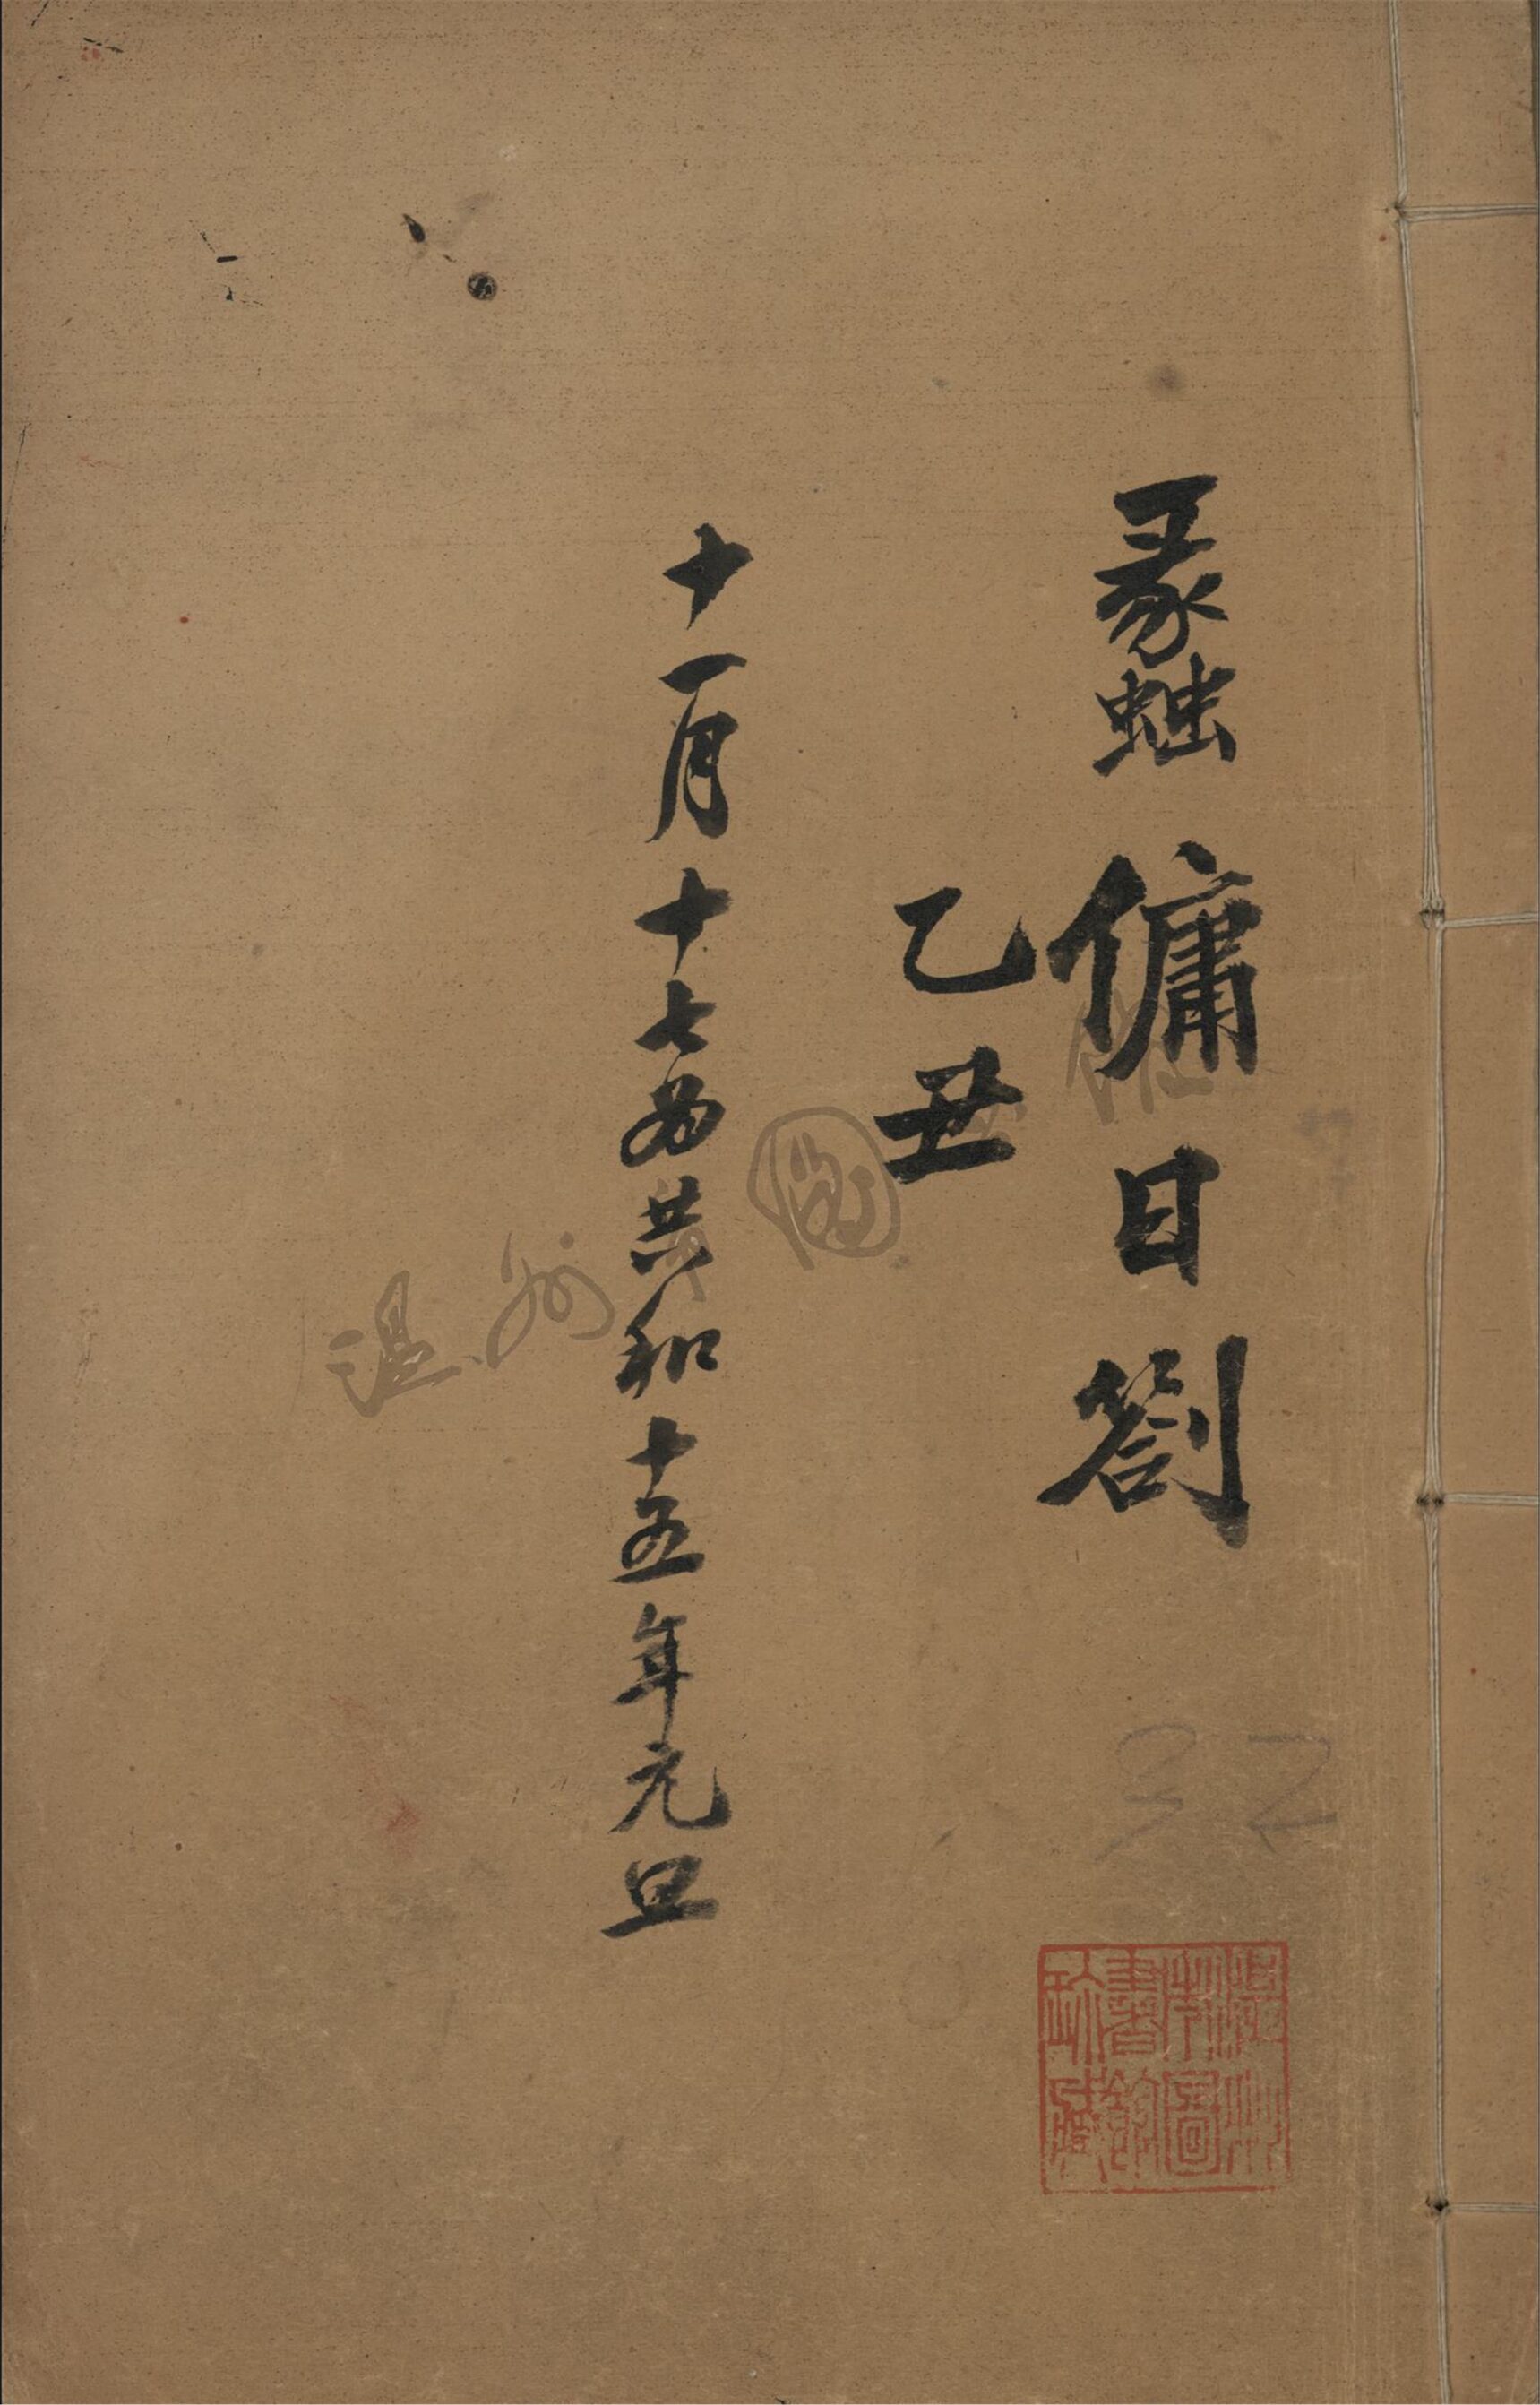 蠡傭日劄
乙丑
十一月十七為共和十五年元旦
32
溫州
市圖
書館
珎藏
温州